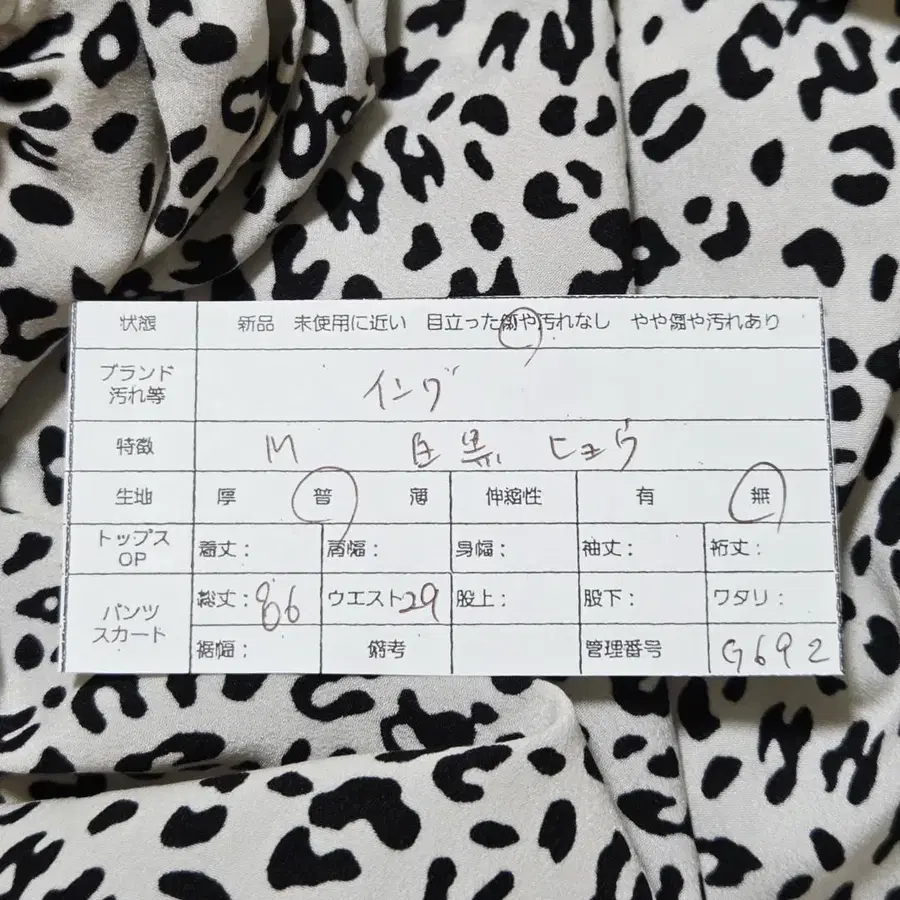 状態 新品 未使用に近い 目立った傷や汚れなし やや傷や汚れあり
ブランド イング
汚れ等
特徴 M 白黒 ヒョウ
生地 厚 普 薄 伸縮性 有 無
トップス OP 着丈: 肩幅: 身幅: 袖丈: 裄丈:
パンツ スカート 総丈:86 ウエスト29 股上: 股下: ワタリ:
裾幅: 備考 管理番号 G692